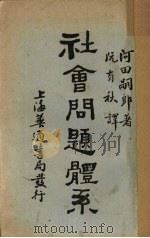 河田嗣郎著
阮有秋譯
社會問題體系
上海華通書局發行